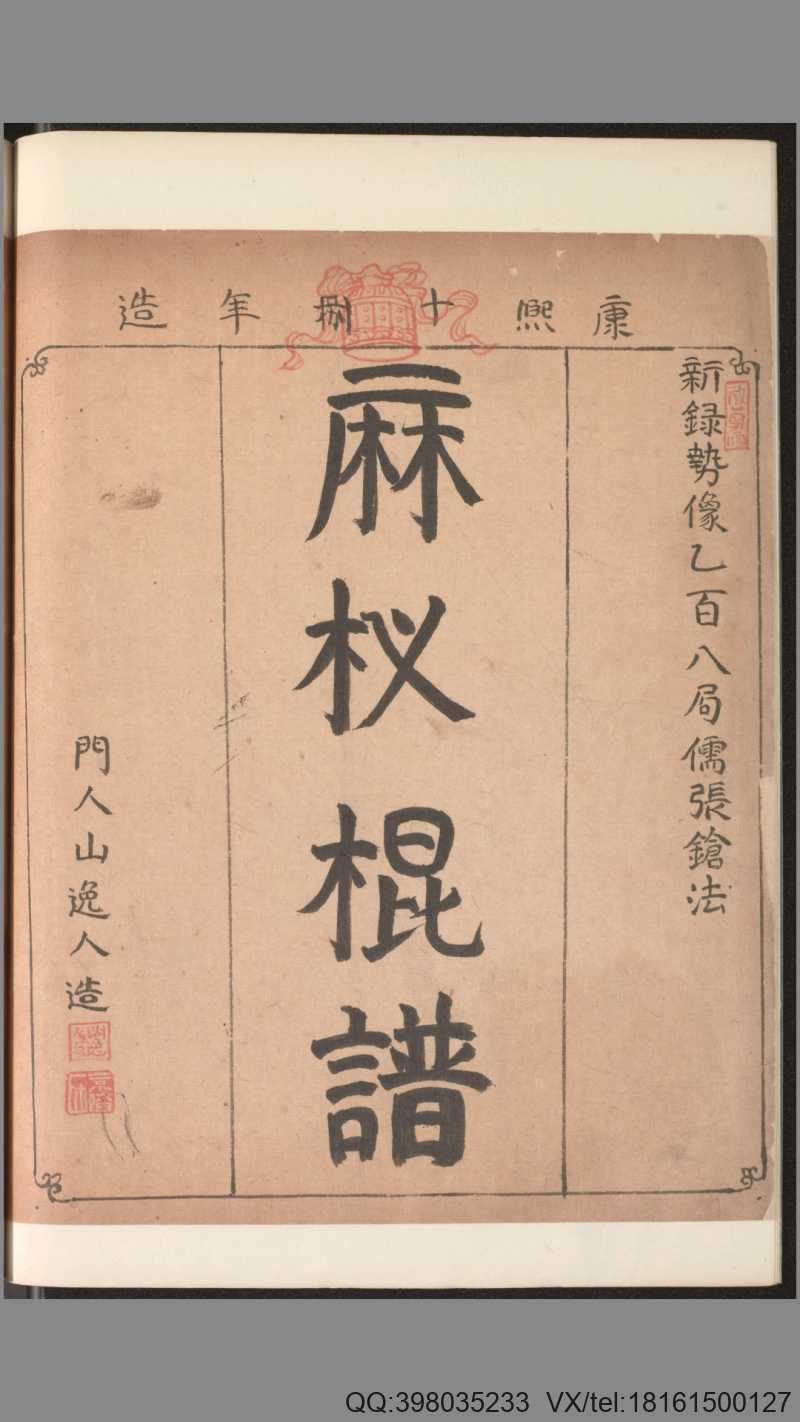 康熙十捌年造
新録勢像乙百八局儒張鎗法
麻杈棍譜
門人山逸人造
QQ:398035233 VX/tel:18161500127